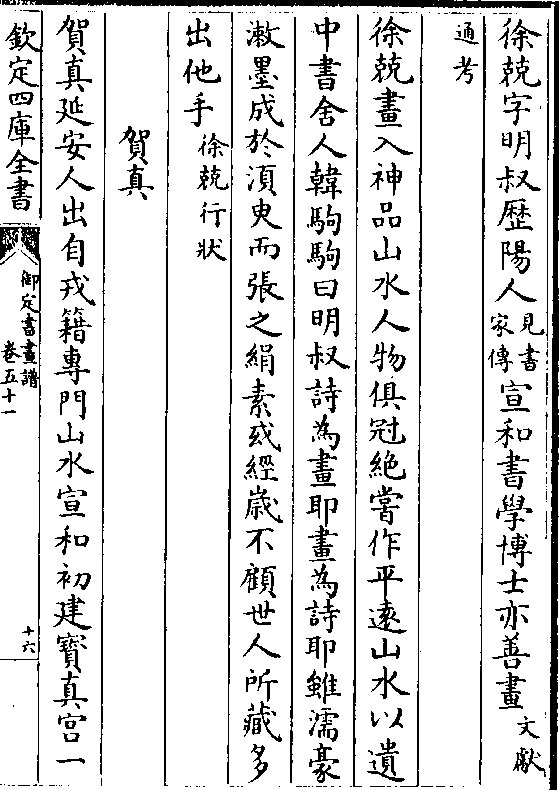 徐兢字明叔歴陽人見書家傳宣和書學博士亦善畫文獻
通考
徐兢畫入神品山水人物俱冠絶嘗作平逺山水以遺
中書舍人韓駒駒曰明叔詩為畫耶畫為詩耶雖濡豪
漱墨成於湏臾而張之絹素或經嵗不顧世人所藏多
出他手徐兢行狀
賀真
賀真延安人出自戎籍專門山水宣和初建寳真宫一
欽定四庫全書
御定書畫譜
卷五十一
十六